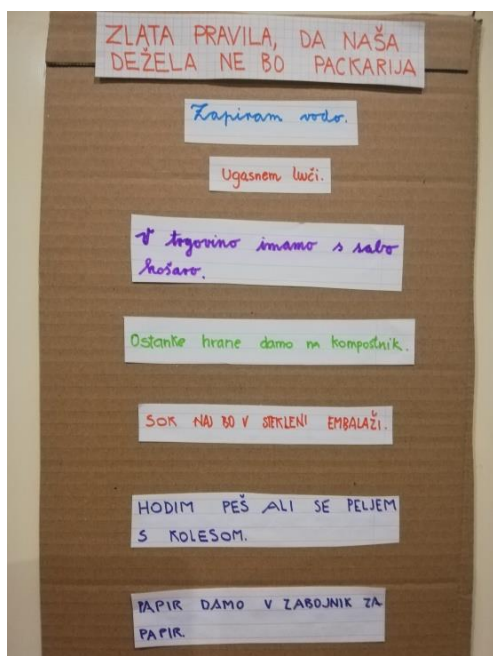 ZLATA PRAVILA, DA NAŠA
DEŽELA NE BO PACKARIJA
Zapiram vodo.
Ugasnem luči.
V trgovino imamo s sabo
košaro.
Ostanke hrane damo na kompostnik.
SOK NAJ BO V STEKLENI EMBALAŽI.
HODIM PEŠ ALI SE PELJEM
S KOLESOM.
PAPIR DAMO V ZABOJNIK ZA
PAPIR.